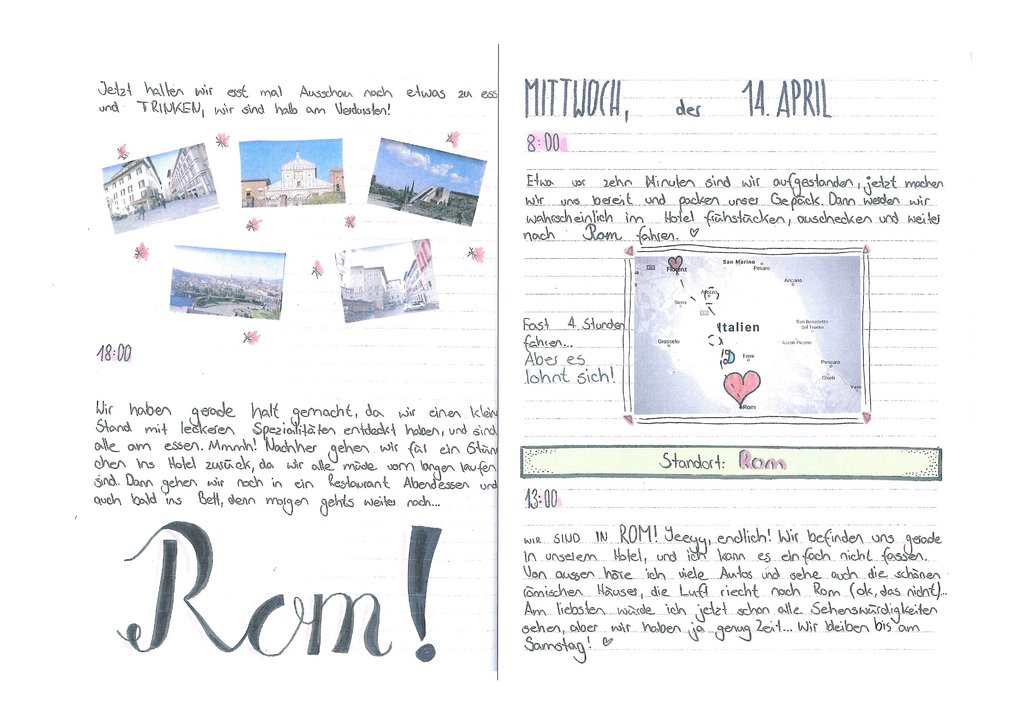 Jetzt halten wir erst mal Ausschau nach etwas zu ess
und TRINKEN, wir sind halb am Verdursten!
18:00
Wir haben gerade halt gemacht, da wir einen klein
Stand mit leckeren Spezialitäten entdeckt haben, und sind
alle am essen. Mmmh! Nachher gehen wir für ein Stün
chen ins Hotel zurück, da wir alle müde vom langen laufen
sind. Dann gehen wir noch in ein Restaurant Abendessen und
auch bald ins Bett, denn morgen gehts weiter nach...
Rom!
MITTWOCH, der 14. APRIL
8:00
Etwa vor zehn Minuten sind wir aufgestanden, jetzt machen
wir uns bereit und packen unser Gepäck. Dann werden wir
wahrscheinlich im Hotel frühstücken, auschecken und weiter
nach Rom fahren.
Florenz
San Marino
Pesaro
Ancona
Arezzo
Siena
Italien
San Benedetto
del Tronto
Grosseto
Ascoli Piceno
Terni
Pescara
Chieti
Rom
Fast 4 Stunden
fahren...
Aber es
lohnt sich!
Standort: Rom
13:00
WIR SIND IN ROM! Yeeyy, endlich! Wir befinden uns gerade
in unserem Hotel, und ich kann es einfach nicht fassen.
Von aussen höre ich viele Autos und sehe auch die schönen
römischen Häuser, die Luft riecht nach Rom (ok, das nicht)...
Am liebsten würde ich jetzt schon alle Sehenswürdigkeiten
sehen, aber wir haben ja genug Zeit... Wir bleiben bis am
Samstag!